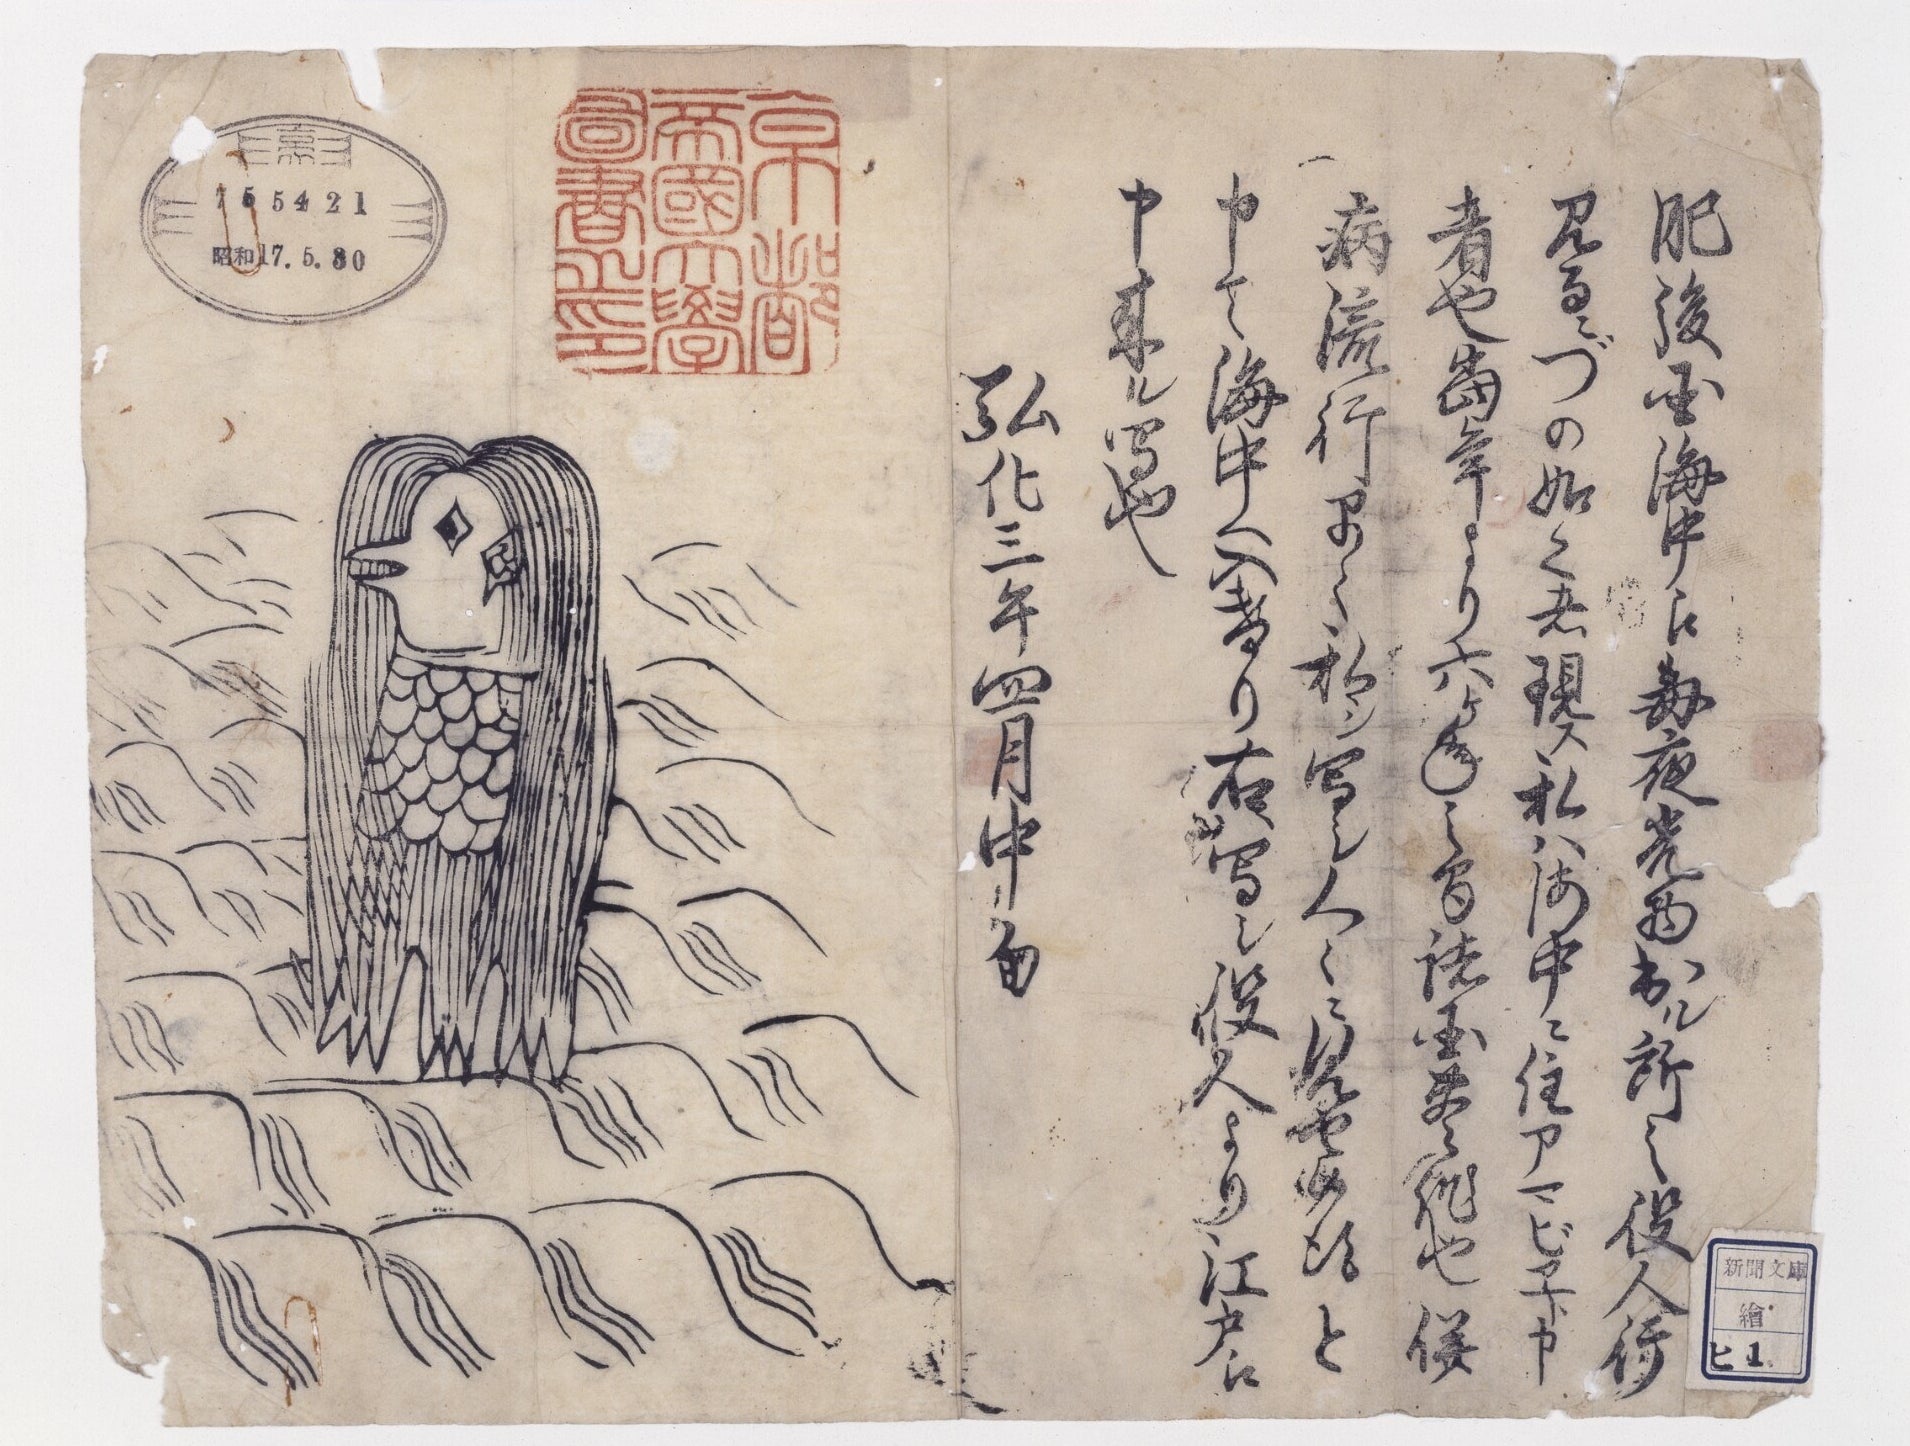 肥後国海中え毎夜光物出ル所之役人行
見るニづの如く者現ス私ハ海中ニ住アマビヱト申
者也當年より六ヶ年之間諸国豊作也併
病流行早々私シ写シ人々ニ見セ候得と
申て海中へ入けり右写シ役人より江戸え
申来ル写也
弘化三年四月中旬
京都
帝國大學
圖書之印
755421
昭和17.5.30
新聞文庫
繪
ヒ 1.